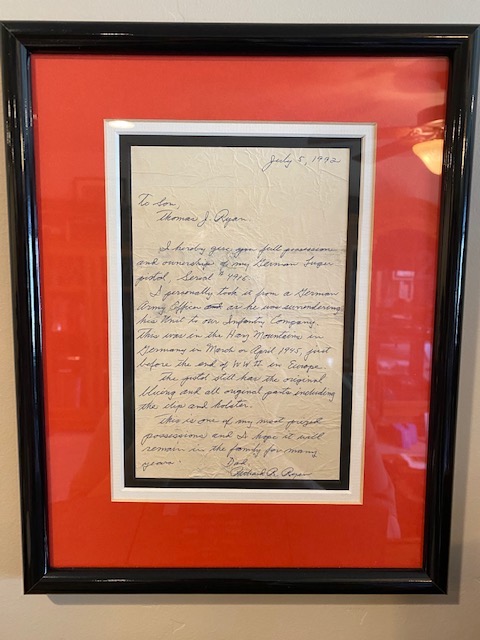 July 5, 1992
To Son,
Thomas J. Ryan
I hereby give you full possession
and ownership of my German Luger
pistol, Serial # 4996.
I personally took it from a German
Army Officer as he was surrendering
his Unit to our Infantry Company.
This was in the Harz Mountains in
Germany in March or April 1945, just
before the end of WW II in Europe
The pistol still has the original
bluing and all original parts including
the clip and holster.
This is one of my most prized
possessions and I hope it will
remain in the family for many
years.
Dad,
Richard R. Ryan